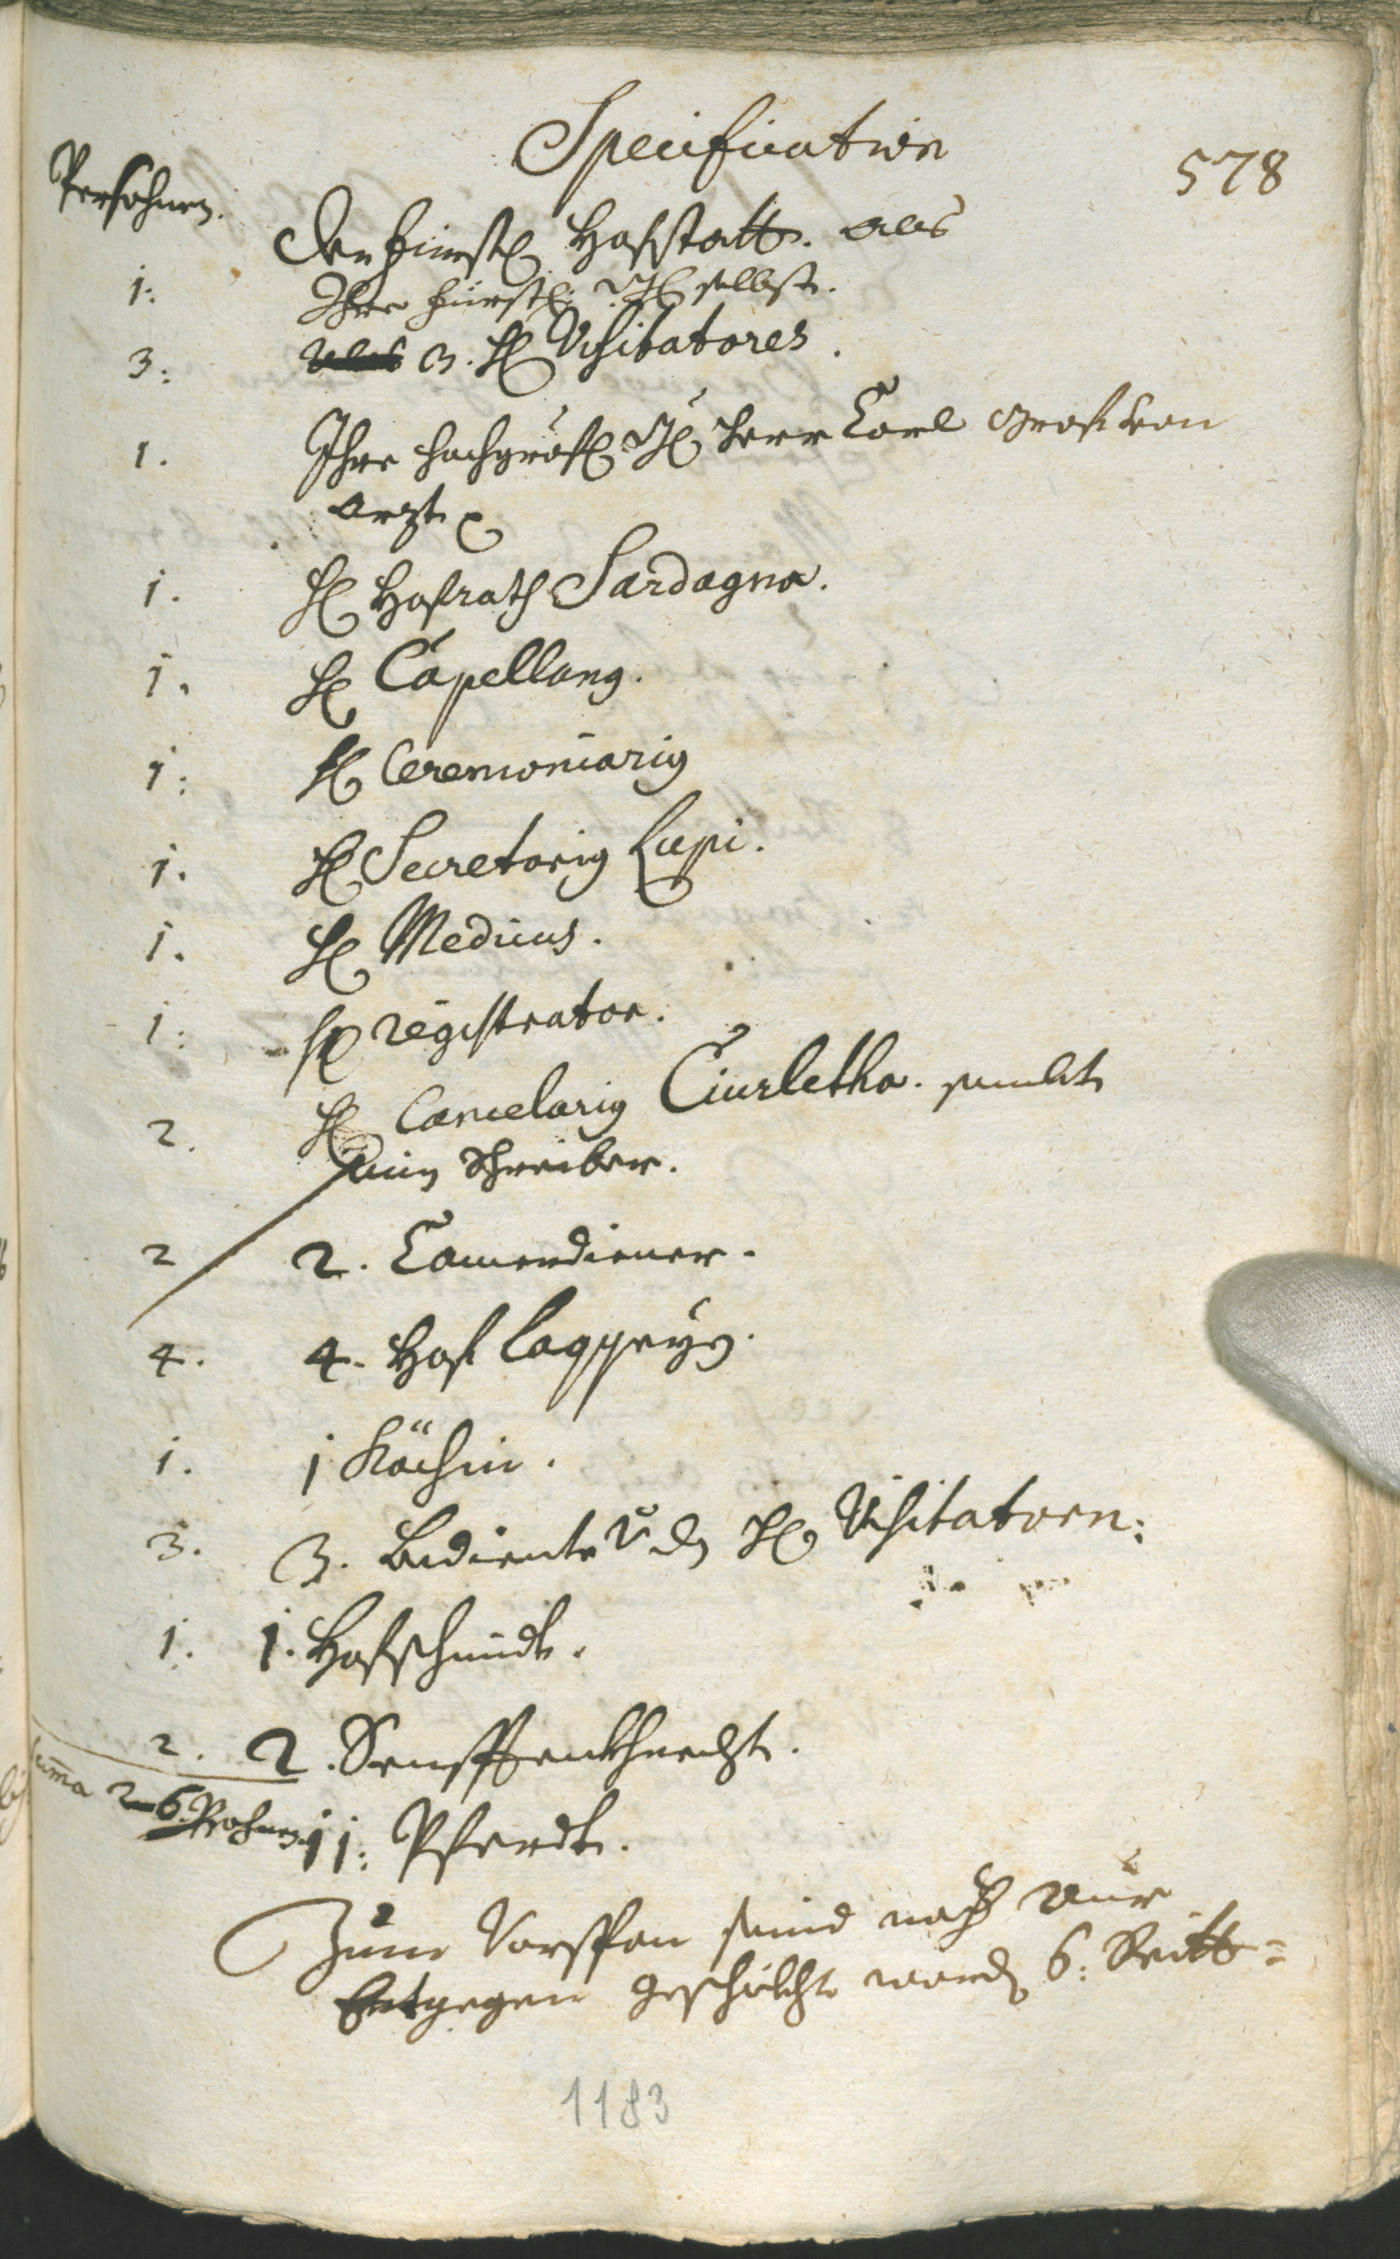 Specification
578
Persohnen.
Der fürstl Hofstatt. als
1: Ihre fürstl: Gl selbst.
3: 3. H Visitatores.
1. Ihre hochgräfl: Gl Herr Carl Graf von
Arzt
1. H Hofrath Sardagna.
1. H Capellang.
1: H Ceremoniarig
1. H Secretarig Lupi.
1. H Medicus.
1: H registrator.
2. H Cancelarig Ciurletha. sambt
sein Schreiber.
2 2. Camerdiener.
4. 4. Hof Laqqeyen.
1. 1 Köchin.
3. 3. Bediente v. den H Visitatorn:
1. 1. Hofschmidt.
2. 2. Senfftenkhnecht.
Suma 26. Persohnen.
11: Pferdt.
Zum Vorspan seind nach Aur
Entgegen geschickht worden 6: Britt=
1183